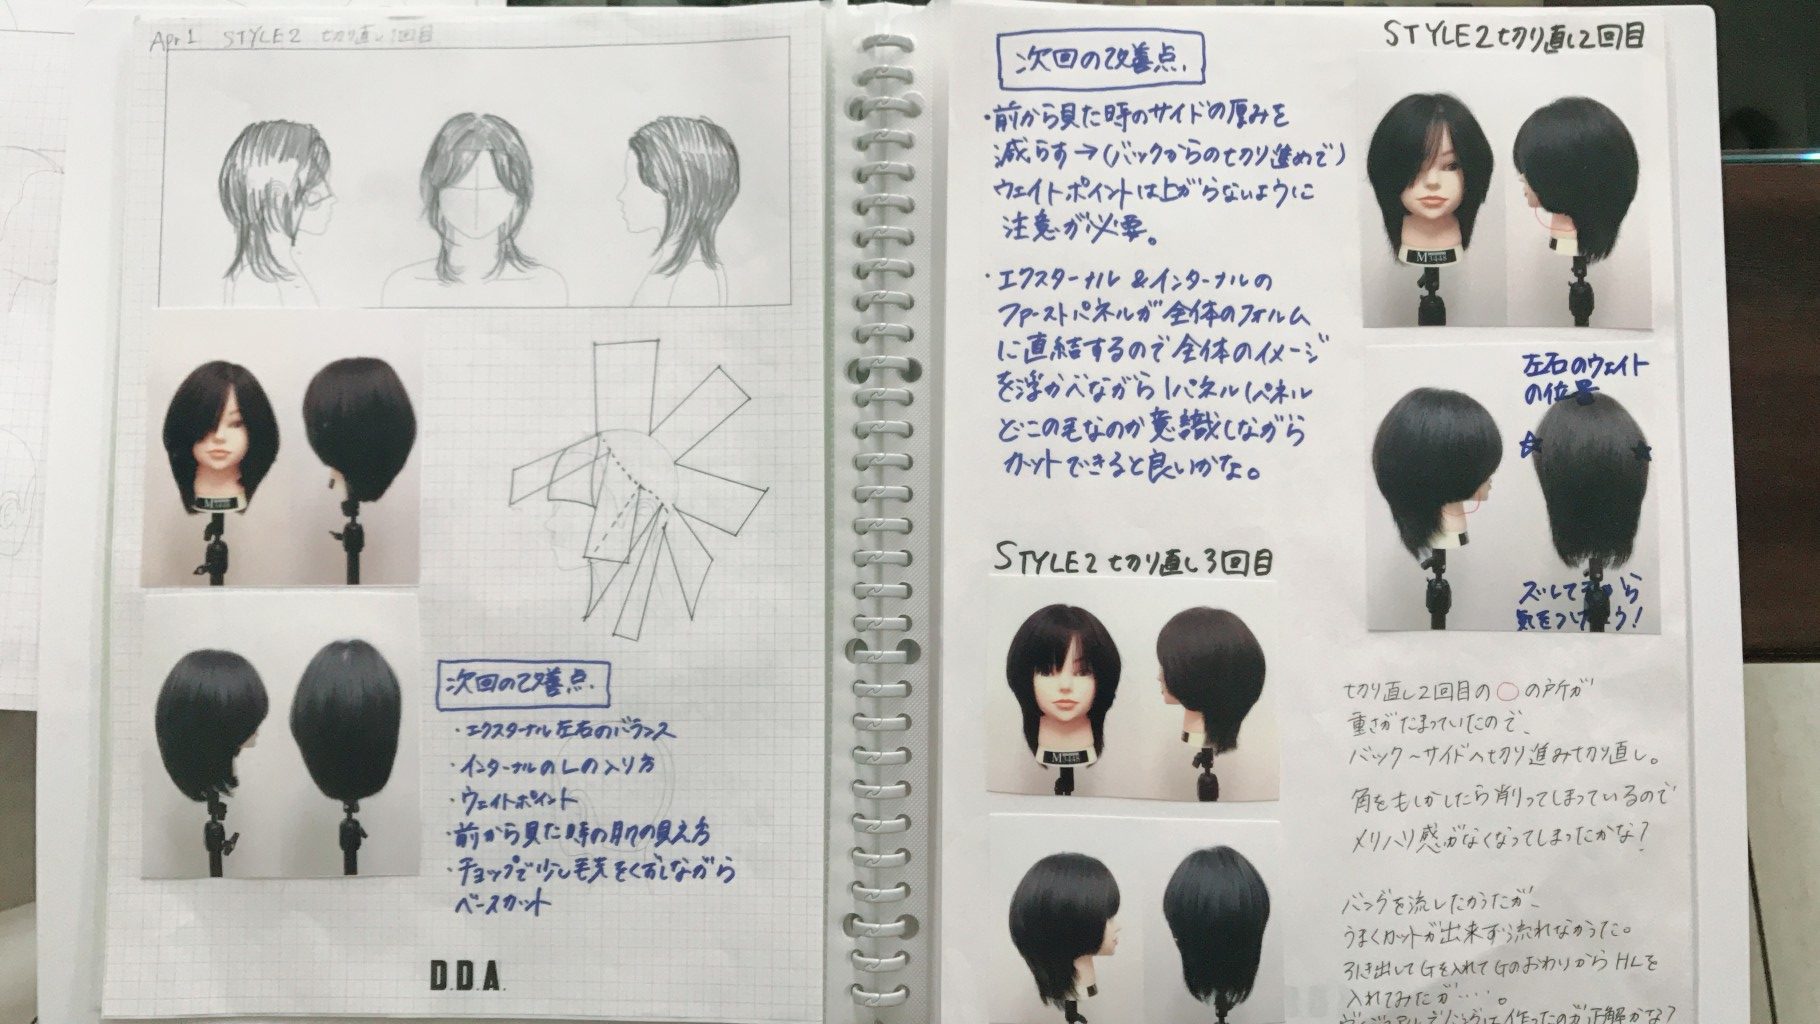 Apr 1 STYLE2 切り直し1回目
次回の改善点.
・エクスターナル左右のバランス
・インターナルのLの入り方
・ウェイトポイント
・前から見た時の肌の見え方
・チョップで少し毛先をくずしながら
ベースカット
D.D.A.
次回の改善点.
・前から見た時のサイドの厚みを
減らす→(バックからの切り進めで)
ウェイトポイントは上がらないように
注意が必要。
・エクスターナル&インターナルの
ファーストパネルが全体のフォルム
に直結するので全体のイメージ
を浮かべながら1パネル1パネル
どこの毛なのか意識しながら
カットできると良いかな。
STYLE2切り直し3回目
STYLE2切り直し2回目
左右のウェイト
の位置
ズレてるから
気をつけよう!
切り直し2回目の○の所が
重さがたまっていたので、
バック~サイドへ切り進み切り直し。
角をもしかしたら削ってしまっているので
メリハリ感がなくなってしまったかな?
バングを流したかったが、
うまくカットが出来ずう流れなかった。
引き出してGを入れてGのおわりからHLを
入れてみたが‥‥。
作ったのが正解かな?
M3448
M3448
M3448